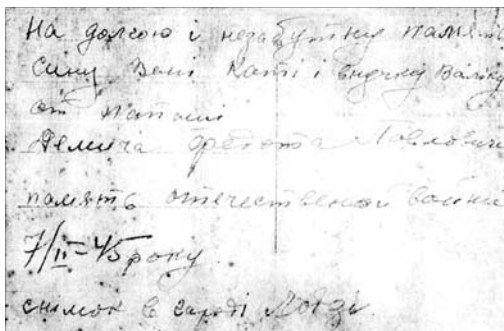 На долгою і незабутну память
сину Вані Каті і внучку Валіку
от папаши
Федота Павловича
память отечественой войни
7/II-45 року
снімок в городі